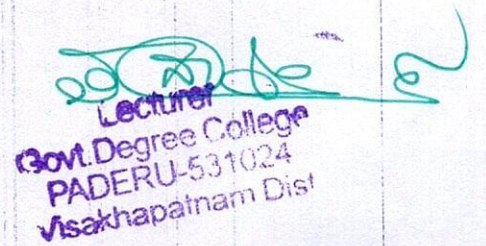 Lecturer
Govt. Degree College
PADERU-531024
Visakhapatnam Dist